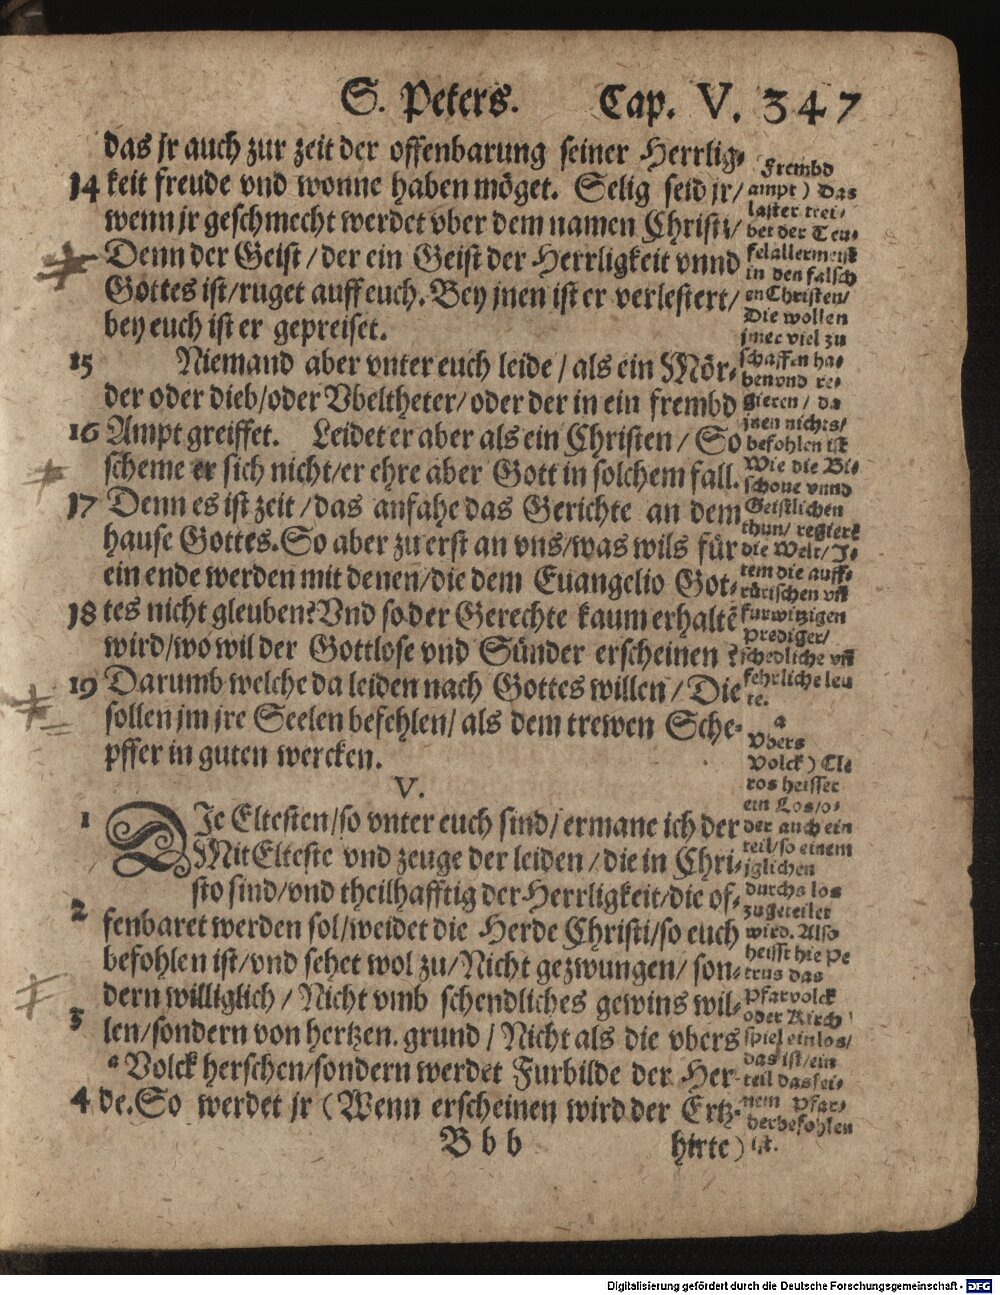 S. Peters. Cap. V. 347
das jr auch zur zeit der offenbarung seiner Herrlig-
14 keit freude vnd wonne haben möget. Selig seid jr/
wenn jr geschmecht werdet vber dem namen Christi/
Denn der Geist/der ein Geist der Herrligkeit vnnd
Gottes ist/ruget auff euch. Bey jnen ist er verlestert/
bey euch ist er gepreiset.
15 Niemand aber vnter euch leide/als ein Mör-
der oder dieb/oder Vbeltheter/oder der in ein frembd
16 Ampt greiffet. Leidet er aber als ein Christen/So
scheme er sich nicht/er ehre aber Gott in solchem fall.
17 Denn es ist zeit/das anfahe das Gerichte an dem
hause Gottes. So aber zu erst an vns/was wils für
ein ende werden mit denen/die dem Euangelio Got-
18 tes nicht gleuben? Vnd so der Gerechte kaum erhaltē
wird/wo wil der Gottlose vnd Sünder erscheinen?
19 Darumb welche da leiden nach Gottes willen/Die
sollen jm jre Seelen befehlen/als dem trewen Sche-
pffer in guten wercken.
V.
1 DJe Eltesten/so vnter euch sind/ermane ich der
MitElteste vnd zeuge der leiden/die in Chri-
sto sind/vnd theilhafftig der Herrligkeit/die of-
2 fenbaret werden sol/weidet die Herde Christi/so euch
befohlen ist/vnd sehet wol zu/Nicht gezwungen/son-
dern williglich/Nicht vmb schendliches gewins wil-
3 len/sondern von hertzen. grund/Nicht als die vbers
a Volck herschen/sondern werdet Furbilde der Her-
4 de. So werdet jr (Wenn erscheinen wird der Ertz-
B b b hirte)
Frembd
ampt) Das
laster trei-
bet der Teu-
fel allermeist
in den falsch
en Christen/
Die wollen
jmer viel zu
schaffen ha-
ben vnd re-
gieren/da
jnen nichts/
befohlen ist
Wie die Bi-
schoue vnnd
Geistlichen
thun/regiert
die Welt/J-
tem die auff-
rürischen vñ
furwitzigen
Prediger/
schedliche vñ
fehrliche leu
te.
a
Vbers
Volck) Cle
ros heisset
ein Los/o-
der auch ein
teil/so einem
jglichen
durchs los
zugeteilet
wird. Also
heisst hie Pe
trus das
Pfarvolck
oder Kirch
spiel ein los/
das ist/ein
teil das sei-
nem Pfar-
der befohlen
ist.
Digitalisierung gefördert durch die Deutsche Forschungsgemeinschaft - DFG